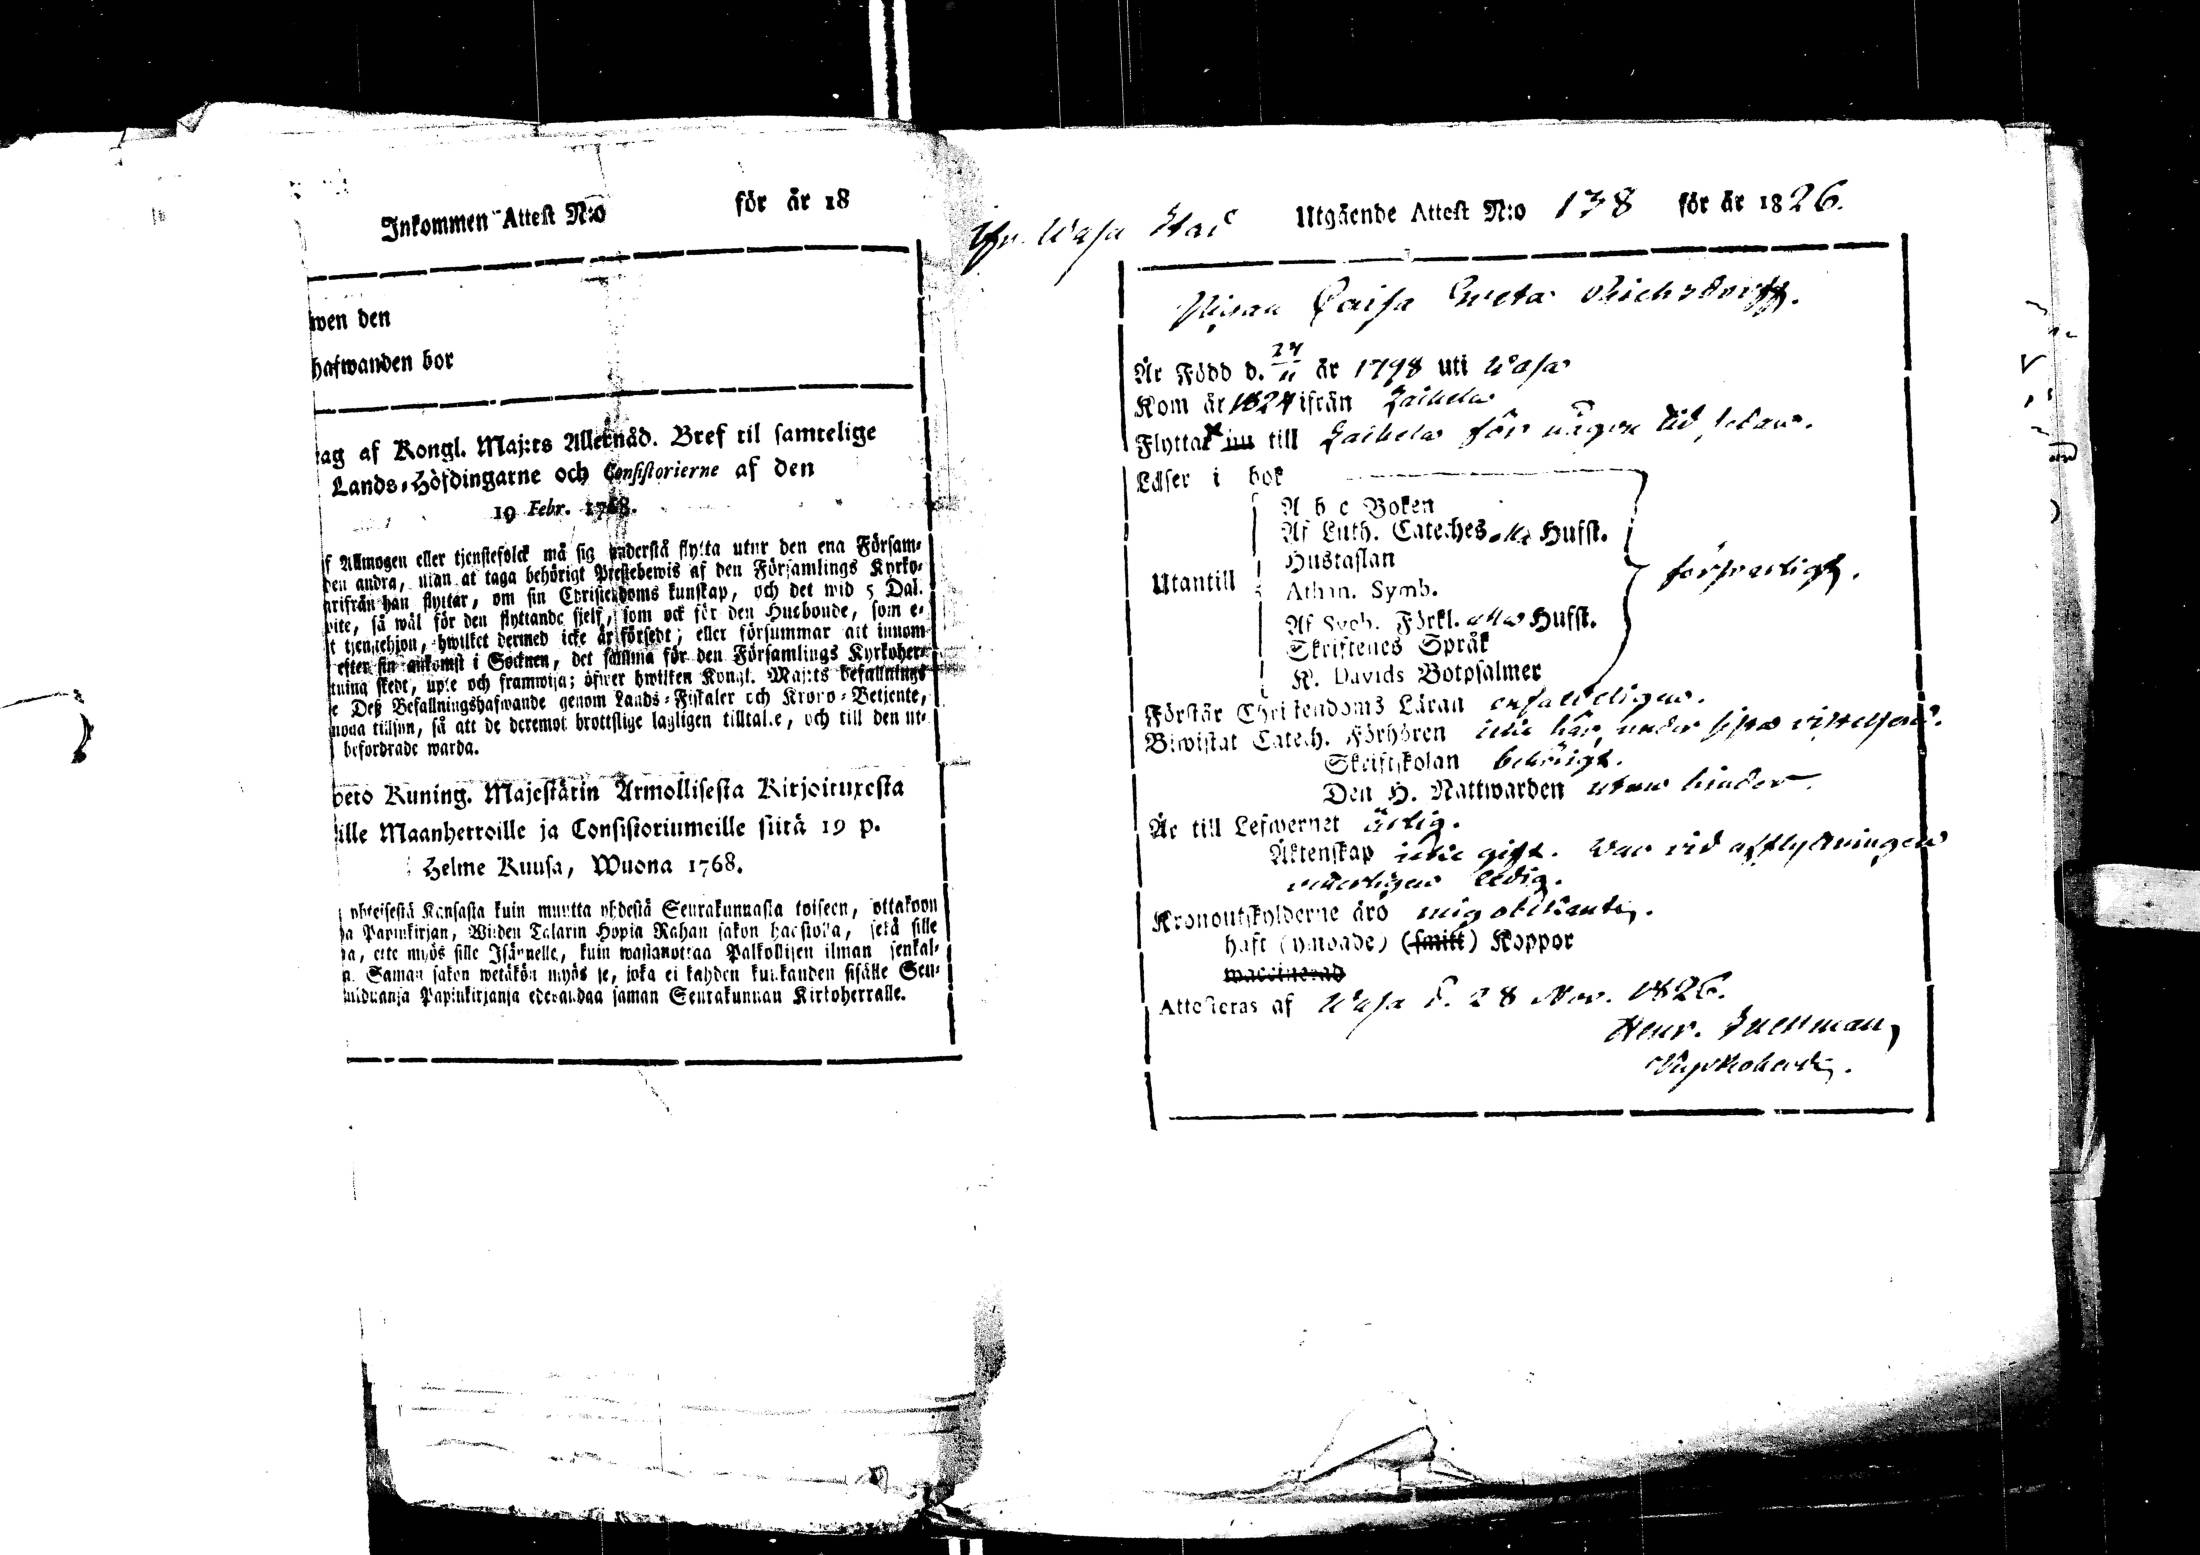 Inkommen Attest N:o för år 18
wen den
hafwanden bor
ag af Kongl. Maj:ts Allernåd. Bref til samtelige
Lands-Höfdingarne och Consistorierne af den
19 Febr. 1768.
f Allmogen eller tjenstefolck må sig understå flytta utur den ena Försam-
den andra, utan at taga behörigt Prestebewis af den Församlings Kyrko-
arifrån han flyttar, om sin Christendoms kunskap, och det wid 5 Dal.
wite, så wäl för den flyttande sjelf, som ock för den Husbonde, som e-
t tjenstehjon, hwilket dermed icke är försedt; eller försummar att innom
efter sin ankomst i Socknen, det samma för den Församlings Kyrkoher-
tning skedt, upte och framwisa; öfwer hwilken Kongl. Maj:ts befallnings
e Deß Befallningshafwande genom Lands-Fiskaler och Krono-Betjente,
noga tillsyn, så att de deremot brottslige lagligen tilltale, och till den ut-
befordrade warda.
peto Kuning. Majestätin Armollisesta Kirjoituxesta
ille Maanherroille ja Consistoriumeille siitä 19 p.
Helme Kuusa, Wuona 1768.
yhteisestä Kansasta kuin muutta yhdestä Seurakunnasta toiseen, ottakoon
a Papinkirjan, Wijden Talarin Hopia Rahan sakon haastolla, sekä sille
a, ette myös sille Isännelle, kuin wastanottaa Palkollisen ilman senkal-
n. Saman sakon wetäkön myös se, joka ei kahden kuukauden sisälle Seu-
Papinkirjansa edesandaa saman Seurakunnan Kirkoherralle.
ifr. Wasa Stad
Utgående Attest N:o 138 för år 1826.
Pigan Caisa Greta Richsdorff.
Är Född d. 24/11 år 1798 uti Wasa
Kom år 1824 ifrån Laihela
Flyttat nu till Laihela för någon tid sedan.
Läser i bok
A b c Boken
Af Luth. Cateches alla Hufst.
Hustaflan
Utantill
Athan. Symb.
Af Sveb. Förkl. alla Hufst.
Skriftenes Språk
K. Davids Botpsalmer
försvarligt.
Förstår Christendoms Läran enfaldeligen.
Biwistat Catech. Förhören icke här under sista vistelsen.
Skriftskolan behörigt.
Den H. Nattwarden utan hinder.
Är till Lefwernet ärlig.
Äktenskap icke gift. War vid afflyttningen
veterligen ledig.
Kronoutskylderne äro mig obekante.
haft (ymoade) (smitt) Koppor
waccinerad
Attesteras af Wasa d. 28 Nov. 1826.
Henr.
Kyrkoherde.